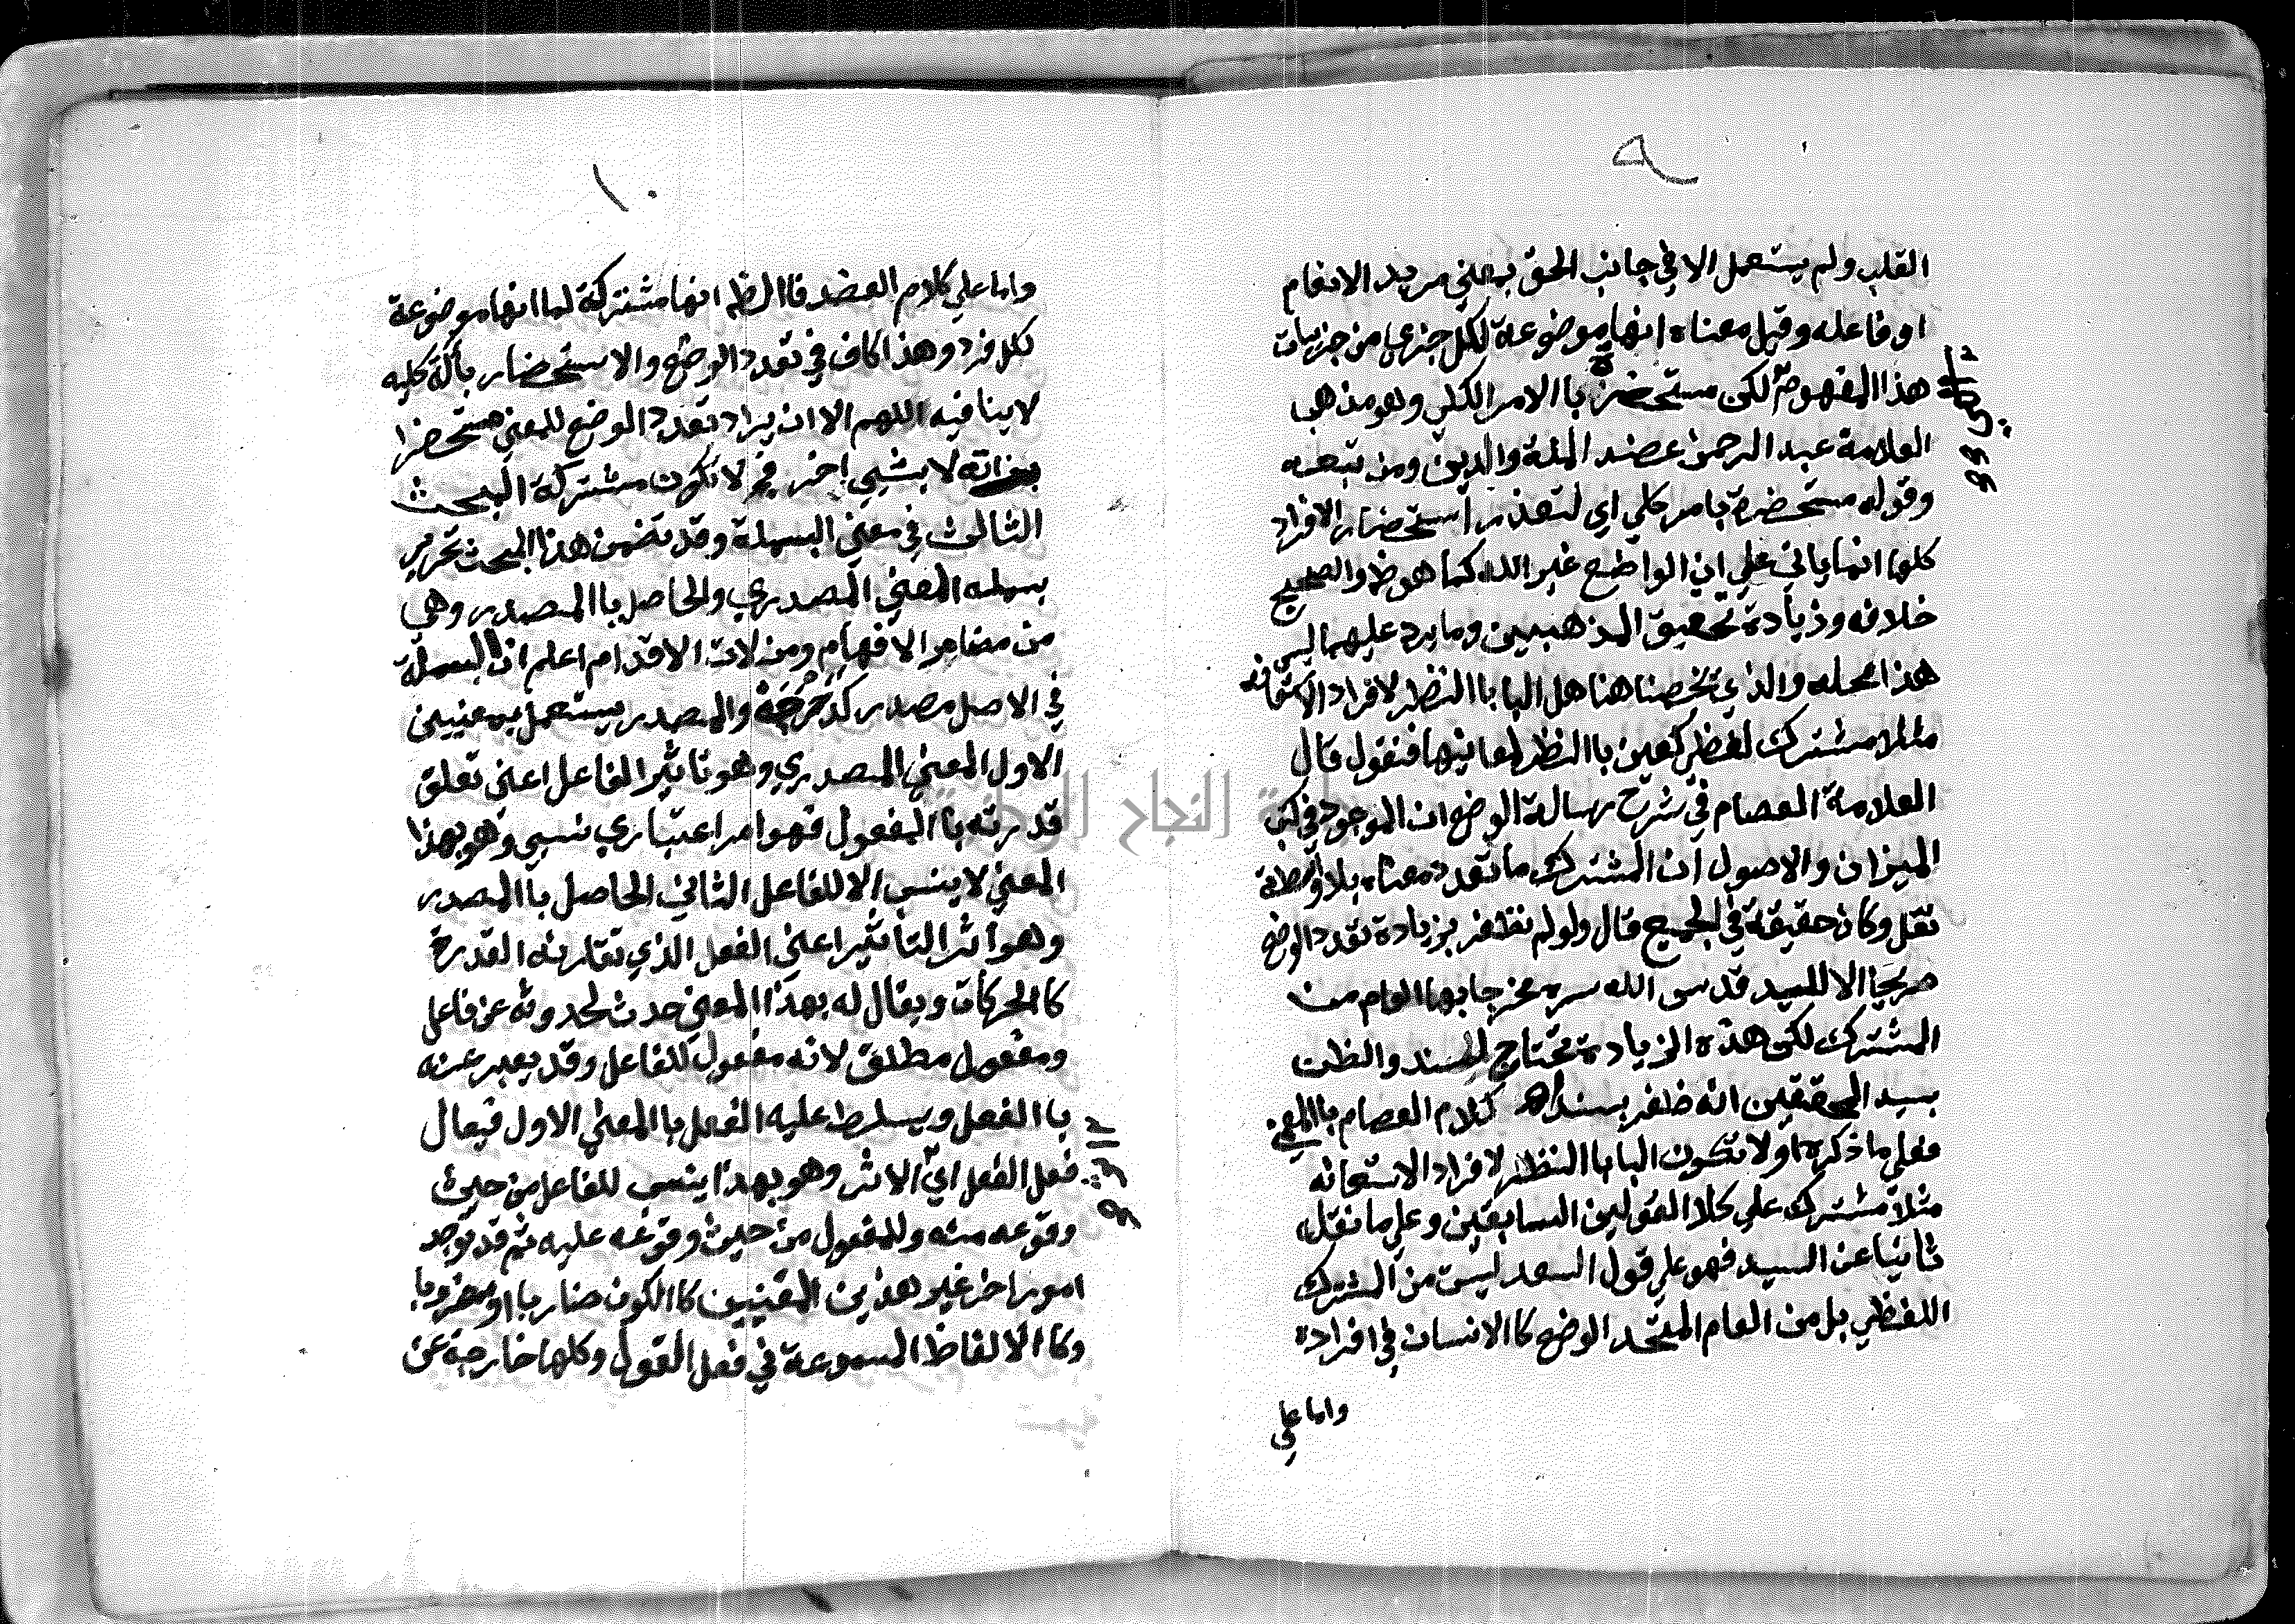 ٩
القلب ولم يستعمل الا في جانب الحق بمعني مريد الانعام
او فاعله وقيل معناه انها موضوعة لكل جزءي من جزييات
هذا المفهوم لكن مستحضرة باالامر الكلي وهو مذهب
العلامة عبد الرحمن عضد الملة والدين ومن تبعه
وقوله مستحضرة بامر كلي اي لتعذر استحضار الافراد
كلها انما ياتي علي ان الواضع غير الله كما هو ظ والصحيح
خلافه وزيادة تحقيق المذهبين وما يرد عليهما ليس
هذا محله والذي يخصنا هنا هل البا باالنظر لافراد الاستعانه
مثلا مشترك لفظي كعين باالنظر لمعانيها فنقول قال
العلامة العصام في شرح رسالة الوضع ان الموجود في كتب
الميزان والاصول ان المشترك ما تعدد معناه بلا واسطة
نقل وكان حقيقة في الجميع قال ولو لم نظفر بزيادة تعدد الوضع
صريحا الا للسيد قدس الله سره مخرجا بها العام من
المشترك لكن هذه الزيادة تحتاج لسند والظن
بسيد المحققين انه ظفر بسند اه كلام العصام باالمعني
فعلي ما ذكره اولا تكون البا باالنظر لافراد الاستعانه
مثلا مشترك علي كلا القولين السابقين وعلي ما نقل
ثانيا عن السيد فهو علي قول السعد ليست من المشترك
اللفظي بل من العام المتحد الوضع كاالانسان في افراده
واما علي
١٠
واما علي كلام العضد فاالظ انها مشتركة لما انها موضوعة
لكل فرد وهذا كاف في تعدد الوضع والاستحضار بآلة كليه
لا ينافيه اللهم الا ان يراد تعدد الوضع للمعني مستحضرا
بذاته لا بشيي اخر فح لا تكون مشتركة المبحث
الثالث في معني البسملة وقد تضمن هذا المبحث تحرير
بسمله المعني المصدري والحاصل باالمصدر وهي
من مضامر الافهام ومزلات الاقدام اعلم ان البسملة
في الاصل مصدر كدحرجة والمصدر يستعمل بمعنيين
الاول المعني المصدري وهو تاثير الفاعل اعني تعلق
قدرته باالمفعول فهو امر اعتباري نسبي وهو بهذا
المعني لا ينسب الا للفاعل الثاني الحاصل باالمصدر
وهو أثر التاثير اعني الفعل الذي تقارنه القدرة
كاالحركات ويقال له بهذا المعني حدث لحدوثه عن فاعل
ومفعول مطلق لانه مفعول للفاعل وقد يعبر عنه
باالفعل ويسلط عليه الفعل باالمعني الاول فيقال
فعل الفعل اي الاثر وهو بهذا ينسب للفاعل من حيث
وقوعه منه وللمفعول من حيث وقوعه عليه ثم قد توجد
امور اخر غير هذين المعنيين كاالكون ضاربا او مضروبا
وكاالالفاظ المسموعة في فعل القول وكلها خارجة عن